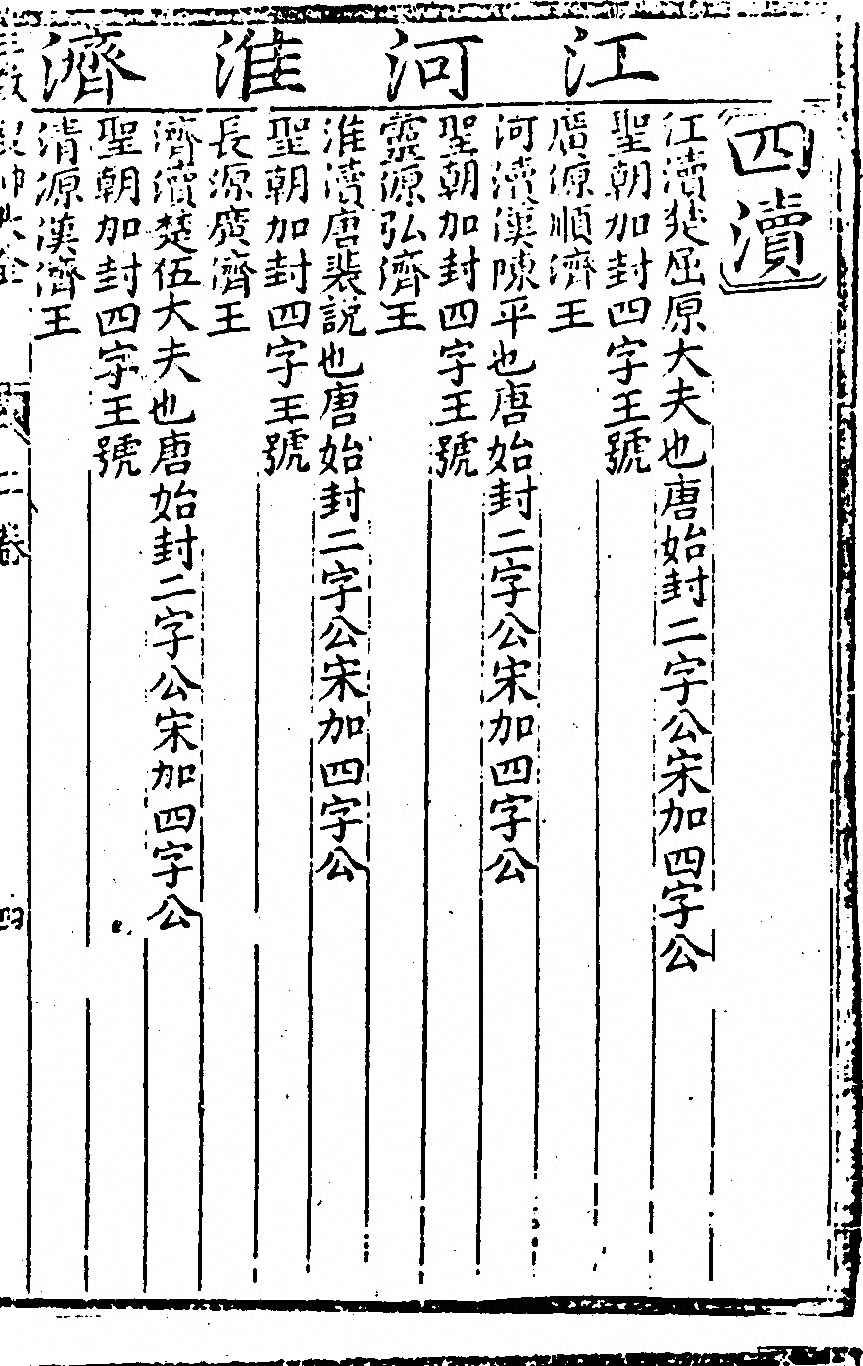 四瀆
江
江瀆楚屈原大夫也唐始封二字公宋加四字公
聖朝加封四字王號
廣源順濟王
河
河瀆漢陳平也唐始封二字公宋加四字公
聖朝加封四字王號
靈源弘濟王
淮
淮瀆唐裴說也唐始封二字公宋加四字公
聖朝加封四字王號
長源廣濟王
濟
濟瀆楚伍大夫也唐始封二字公宋加四字公
聖朝加封四字王號
清源漢濟王
二卷
四